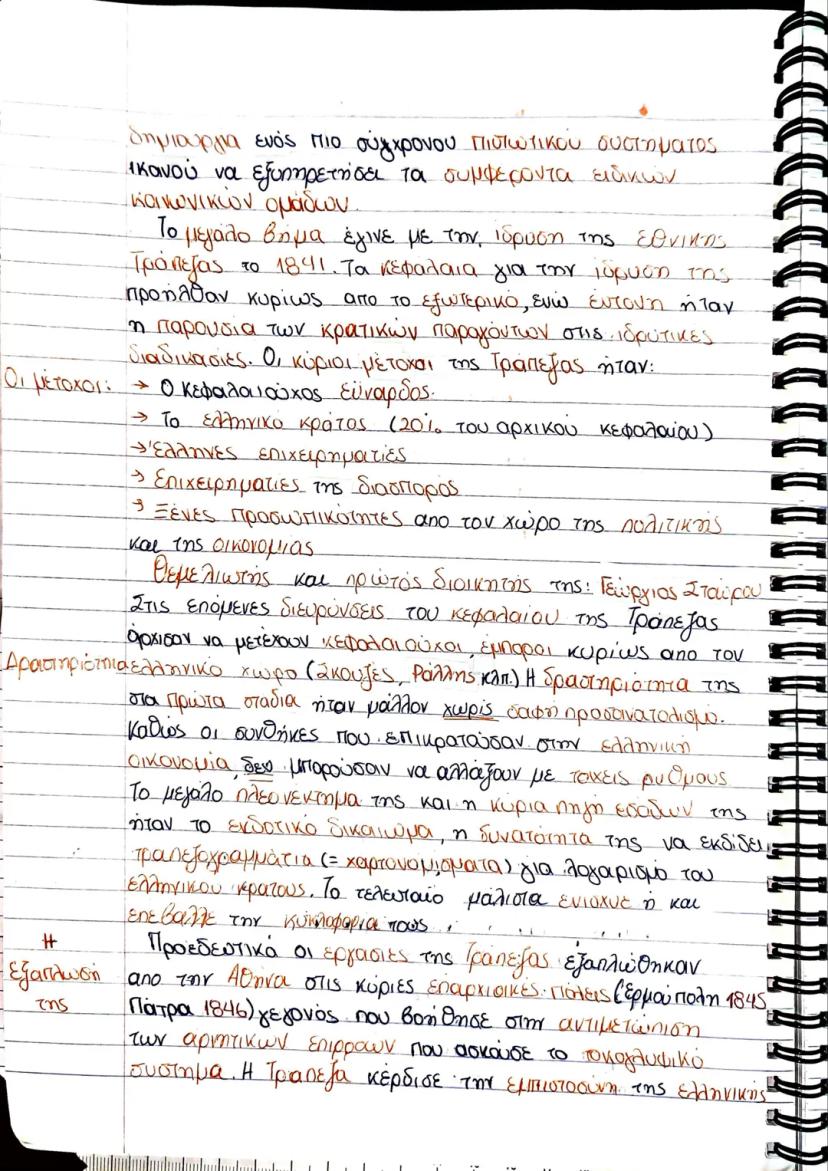 δημιουργία ενός πιο σύγχρονου πιστωτικού συστήματος
ικανού να εξυπηρετήσει τα συμφέροντα ειδικών
κοινωνικών ομάδων.
Το μεγάλο βήμα έγινε με την ίδρυση της Εθνικής
Τράπεζας το 1841. Τα κεφάλαια για την ίδρυση της
προήλθαν κυρίως απο το εξωτερικό, ενώ έντονη ήταν
η παρουσία των κρατικών παραγόντων στις ιδρυτικές
διαδικασίες. Οι κύριοι μέτοχοι της Τράπεζας ήταν:
Οι μέτοχοι: → Ο κεφαλαιούχος εϋνάρδος.
→ Το ελληνικό κράτος (20% του αρχικού κεφαλαίου)
→ Έλληνες επιχειρηματίες
→ Επιχειρηματίες της διασποράς
→ Ξένες προσωπικότητες απο τον χώρο της πολιτικής
και της οικονομίας
Θεμελιωτής και πρώτος διοικητής της: Γεώργιος Σταύρου
Στις επόμενες διευρύνσεις του κεφαλαίου της Τράπεζας
άρχισαν να μετέχουν κεφαλαιούχοι, έμποροι κυρίως απο τον
Δραστηριότητα ελληνικό χώρο (Σκουζές, Ράλλης κλπ.) Η δραστηριότητα της
στα πρώτα στάδια ήταν μάλλον χωρίς σαφή προσανατολισμό.
Καθώς οι συνθήκες που επικρατούσαν στην ελληνική
οικονομία, δεν μπορούσαν να αλλάξουν με ταχείς ρυθμούς.
Το μεγάλο πλεονέκτημα της και η κύρια πηγή εσόδων της
ήταν το εκδοτικό δικαίωμα, η δυνατότητα της να εκδίδει
τραπεζογραμμάτια (= χαρτονομίσματα) για λογαρισμό του
ελληνικού κράτους. Το τελευταίο μάλιστα ενίσχυε ή και
επέβαλλε την κυκλοφορία τους
Η εξάπλωσή της
Προεδευτικά οι εργασίες της Τράπεζας εξαπλώθηκαν
απο την Αθήνα στις κύριες επαρχιακές πόλεις (Ερμούπολη 1845
Πάτρα 1846) γεγονός που βοήθησε στην αντιμετώπιση
των αρνητικών επιρροών που ασκούσε το τοκογλυφικό
σύστημα. Η Τράπεζα κέρδισε την εμπιστοσύνη της ελληνικής